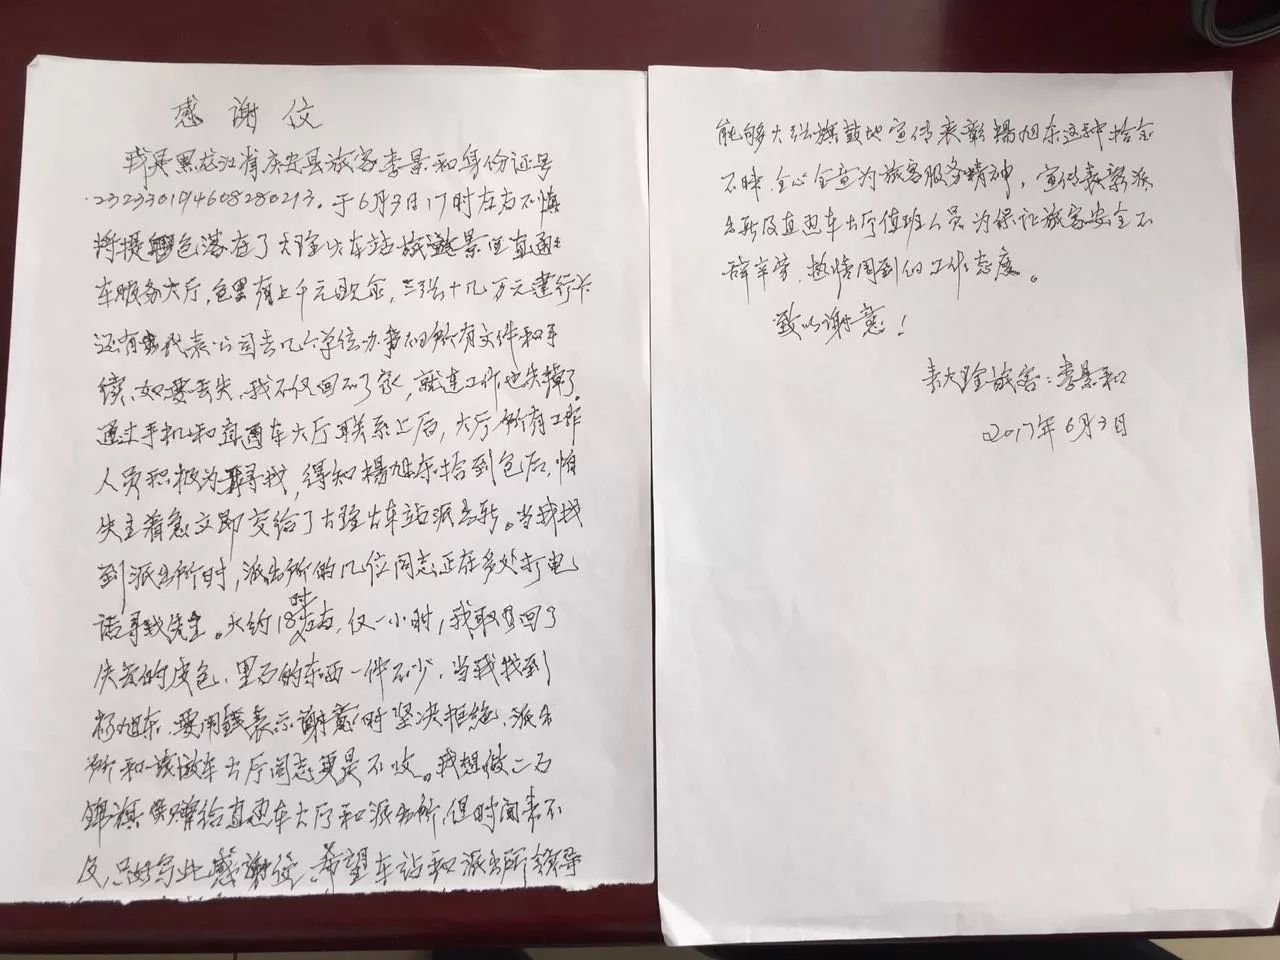 感谢信
我是黑龙江省庆安县旅客李景和身份证号
232330194608280213.于6月3日17时左右不慎
将提包落在了大理火车站旅游景区直通
车服务大厅,包里有上千元现金,三张十几万元建行卡
还有代表公司去几个单位办事的所有文件和手
续,如要丢失,我不仅回不了家,就连工作也失掉了。
通过手机和直通车大厅联系上后,大厅所有工作
人员积极为寻找,得知杨旭东拾到包后,怕
失主着急立即交给了大理火车站派出所。当我找
到派出所时,派出所的几位同志正在多处打电
话寻找失主。大约18时左右,仅一小时,我取回了
失去的皮包,里面的东西一件不少,当我找到
杨旭东,要用钱表示谢意时坚决拒绝,派出
所和车大厅同志更是不收。我想做二面
锦旗赠给直通车大厅和派出所,但时间来不
及,只好写此感谢信,希望车站和派出所领导
能够大张旗鼓地宣传表彰杨旭东这种拾金
不昧,全心全意为旅客服务精神,宣传表彰派
出所及直通车大厅值班人员为保证旅客安全不
辞辛劳,热情周到的工作态度。
致以谢意!
来大理旅客:李景和
2017年6月3日